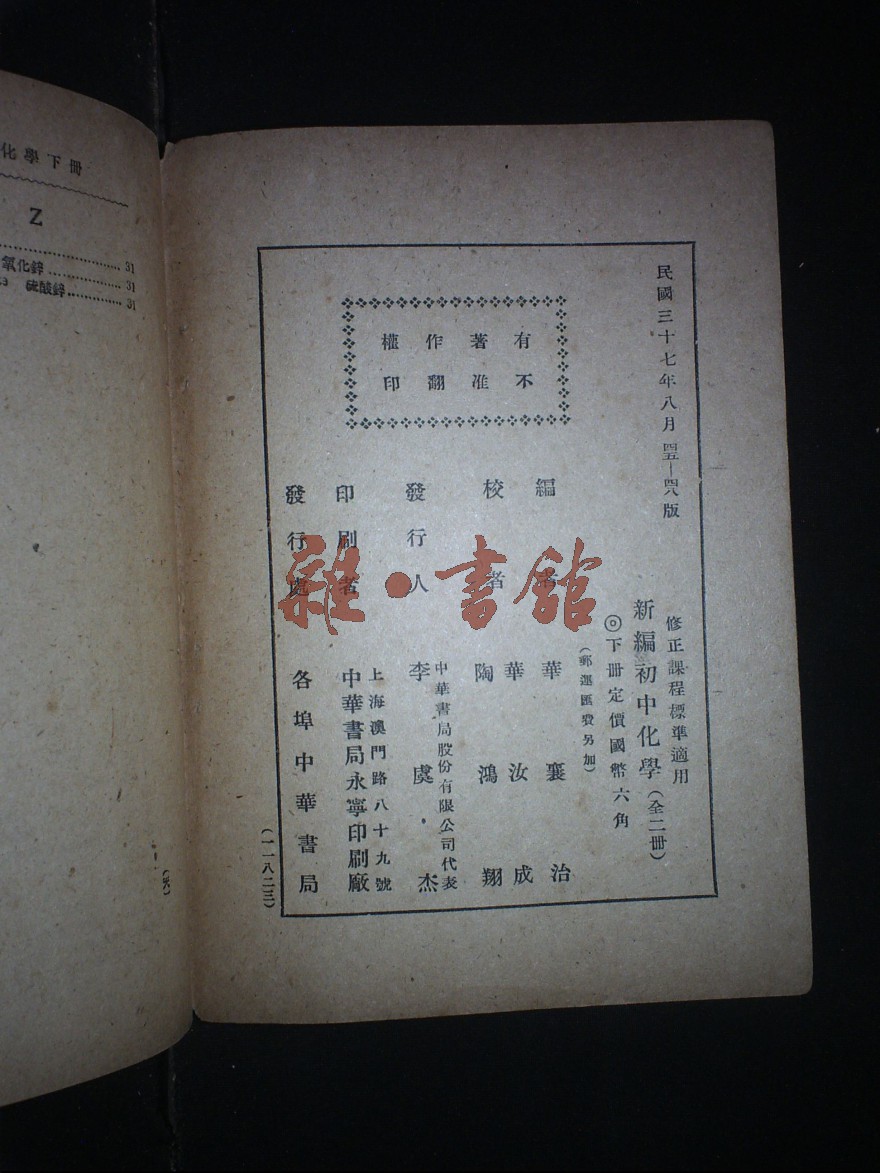 化學下冊
Z
31
氧化鋅 31
硫酸鋅 31
民國三十七年八月 版
修正課程標準適用
新編初中化學(全二冊)
◎下冊定價國幣六角
(郵運匯費另加)
有著作權
不准翻印
編者 華襄治
華汝成
校者 陶鴻翔
發行人 中華書局股份有限公司代表
李虞杰
印刷者 上海澳門路八十九號
中華書局永寧印刷廠
發行處 各埠中華書局
(一一八二三)
雜·書館